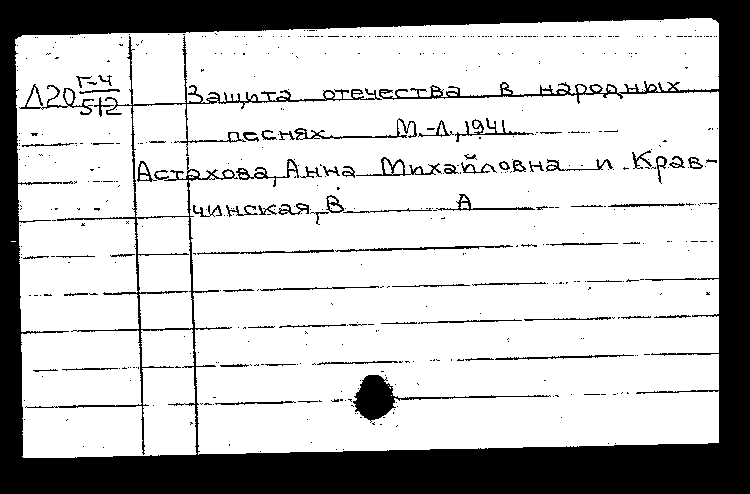 Л20 Г-4/512 Защита отечества в народных
песнях М.-Л., 1941
Астахова, Анна Михайловна и Крав-
чинская, В А